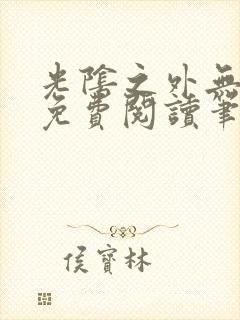 光陰之外無
免費閱讀筆
侯寶林